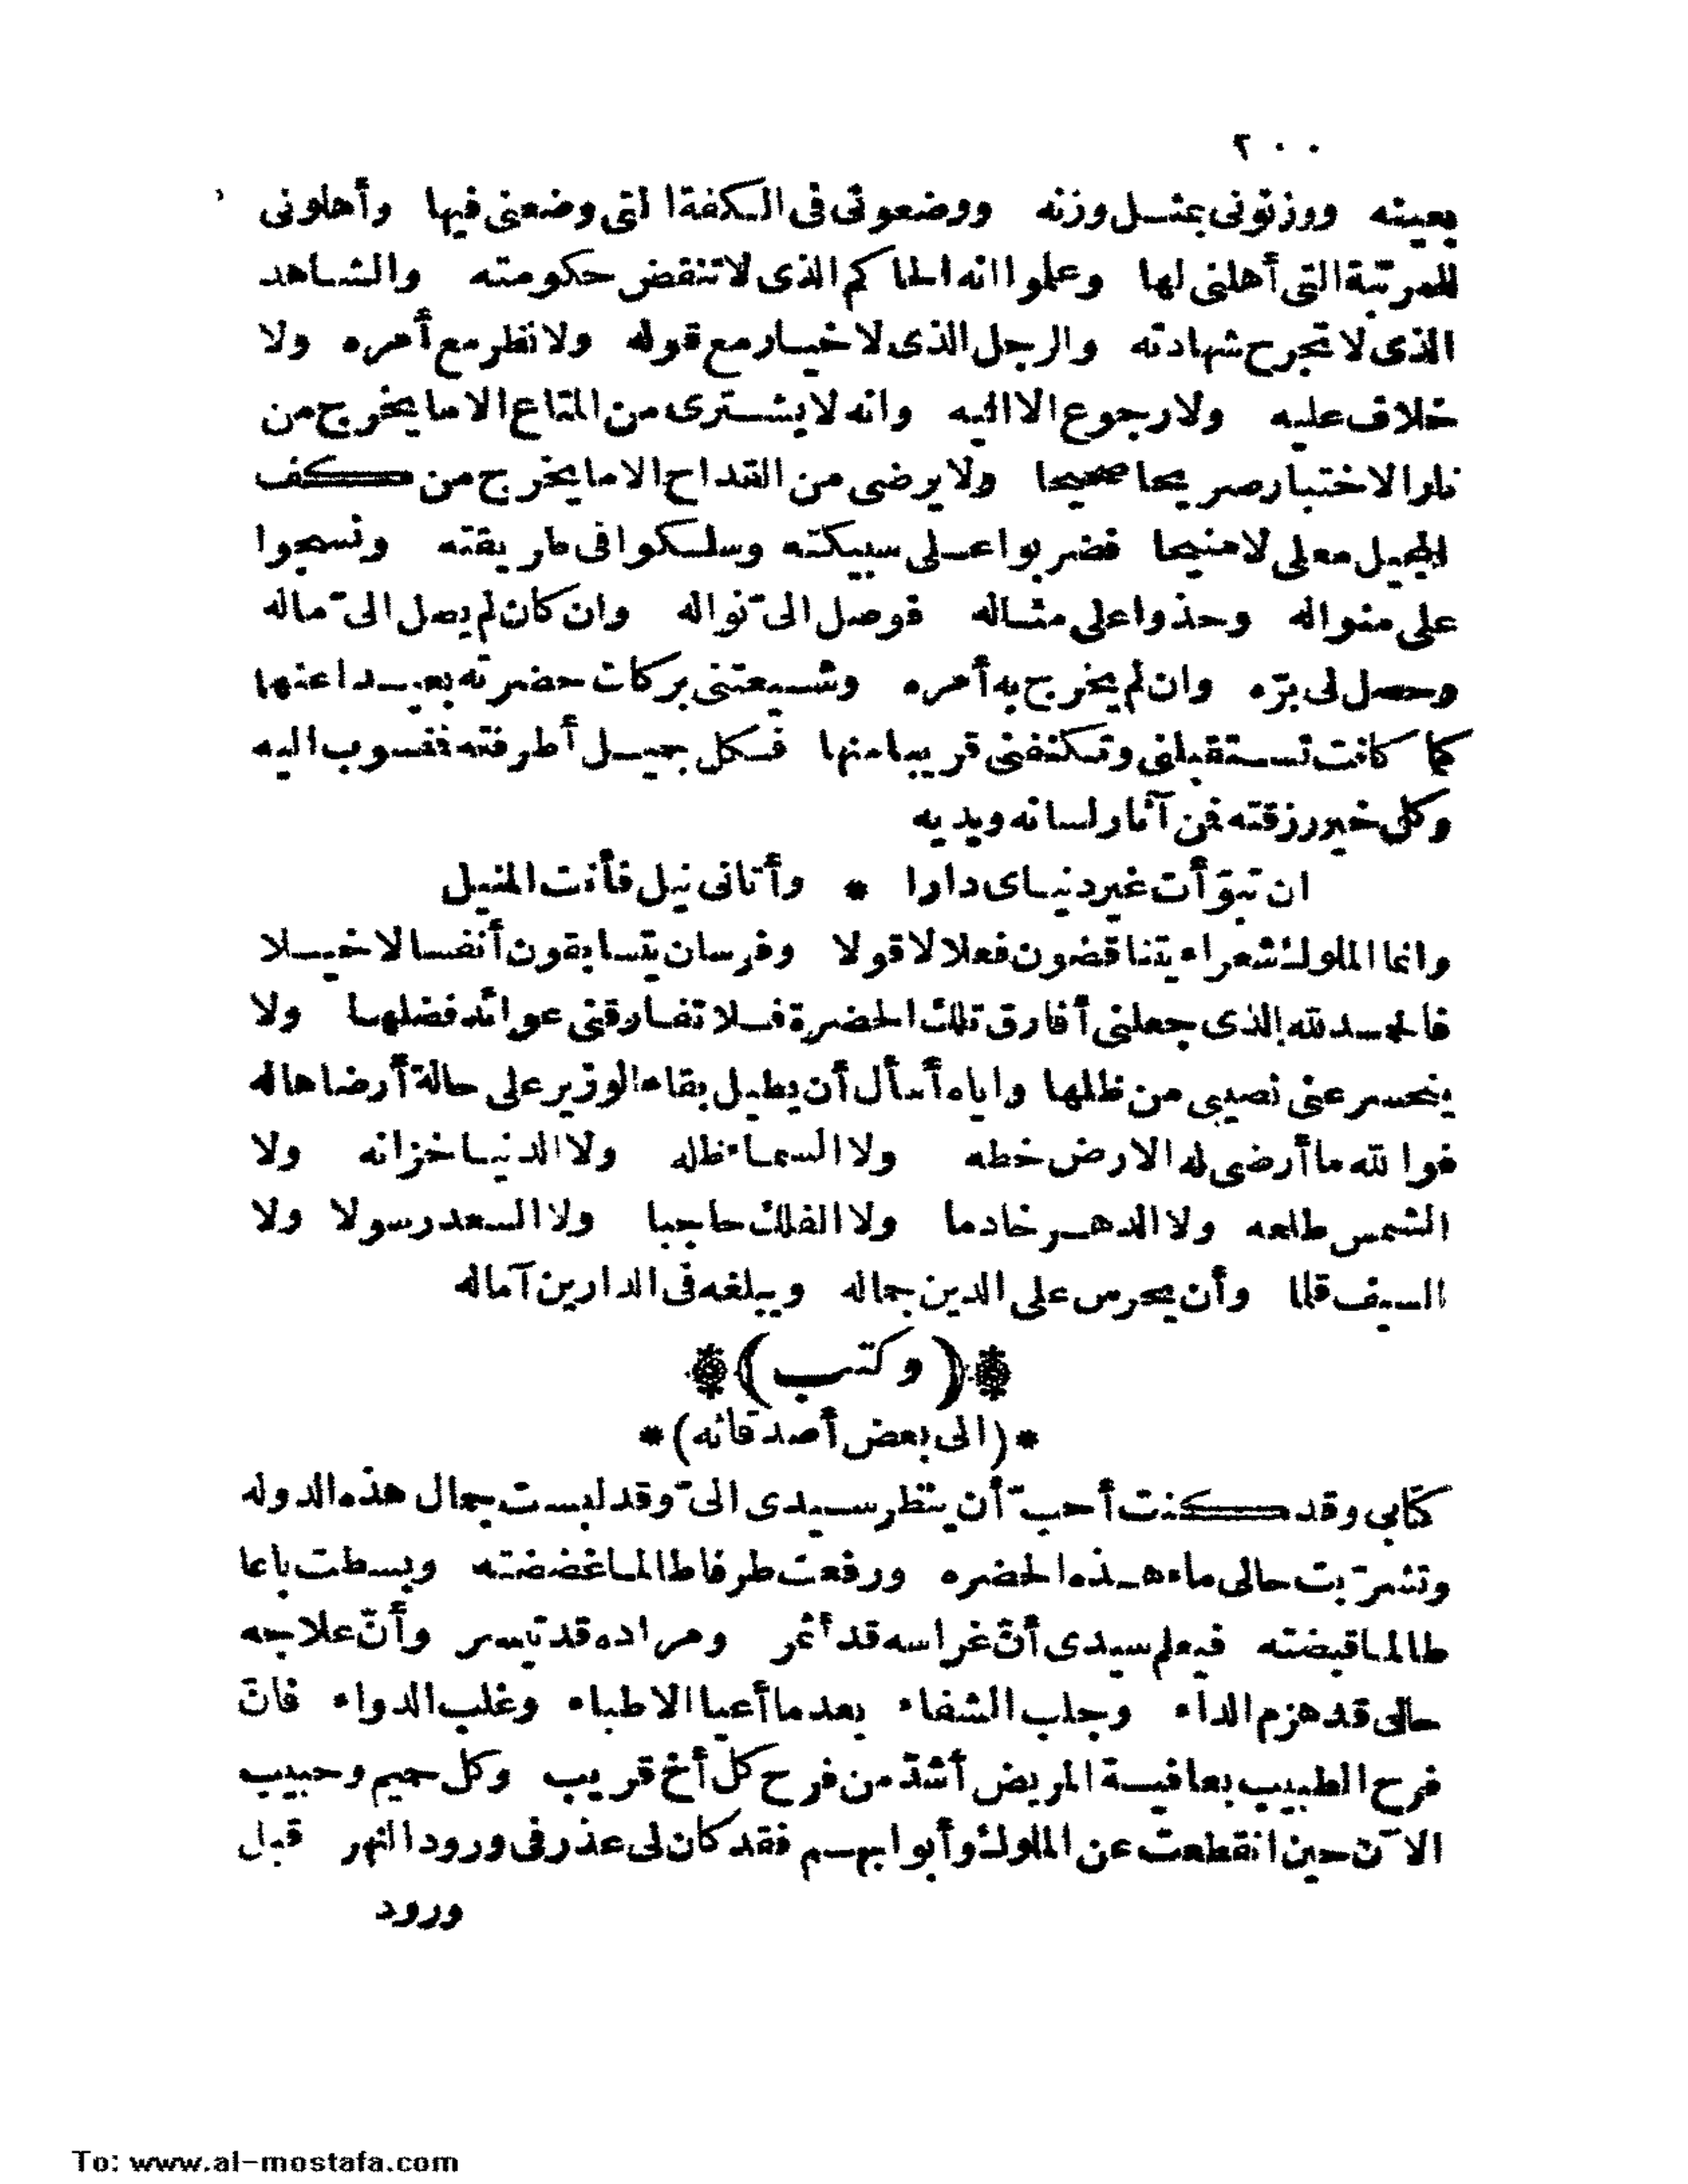 ٢٠٠
بعينه ووزنونى بمثل وزنه ووضعونى فى الكفة التى وضعنى فيها وأهلونى
للمرتبة التى أهلنى لها وعلموا انه الحاكم الذى لا تنقض حكومته والشاهد
الذى لا تجرح شهادته والرجل الذى لا خيار مع قوله ولا نظر مع أمره ولا
خلاف عليه ولا رجوع الا اليه وانه لا يشترى من المتاع الا ما يخرج من
نار الاختبار صريحا صحيحا ولا يرضى من القداح الا ما يخرج من كف
المجيل معلى لا منيحا فضربوا على سبيكته وسلكوا فى طريقته ونسجوا
على منواله وحذوا على مثاله فوصل الىّ نواله وان كان لم يصل الىّ ماله
وحصل لى برّه وان لم يخرج به أمره وشيعتنى بركات حضرته بعيدا عنها
كما كانت تستقبلنى وتكنفنى قريبا منها فكل جميل أطرفته فنسوب اليه
وكل خير رزقته فمن آثار لسانه ويديه
ان تبوّأت غير دنياى دارا * وأتانى نيل فأنت المنيل
وانما الملوك شعراء يتناقضون فعلا لا قولا وفرسان يتسابقون أنفسا لا خيلا
فالحمد لله الذى جعلنى أفارق تلك الحضرة فلا تفارقنى عوائد فضلها ولا
ينحسر عنى نصيبى من ظلها واياه أسأل أن يطيل بقاء الوزير على حالة أرضاها له
فوالله ما أرضى له الارض خطه ولا السماء ظله ولا الدنيا خزانه ولا
الشمس طلعه ولا الدهر خادما ولا الفلك حاجبا ولا السعد رسولا ولا
السيف قلما وأن يحرس على الدين جماله ويبلغه فى الدارين آماله
﴿وكتب﴾
*(الى بعض أصدقائه)*
كتابى وقد كنت أحبّ أن ينظر سيدى الىّ وقد لبست جمال هذه الدوله
وتشرّبت حالى ماء هذه الحضره ورفعت طرفا طالما غضضته وبسطت باعا
طالما قبضته فيعلم سيدى أنّ غراسه قد أثمر ومراده قد تيسر وأنّ علاجه
حالى قد هزم الداء وجلب الشفاء بعد ما أعيا الاطباء وغلب الدواء فانّ
فرح الطبيب بعافية المريض أشدّ من فرح كل أخ قريب وكل حميم وحبيب
الآن حين انقطعت عن الملوك وأبوابهم فقد كان لى عذر فى ورود النهر قبل
ورود
To: www.al-mostafa.com